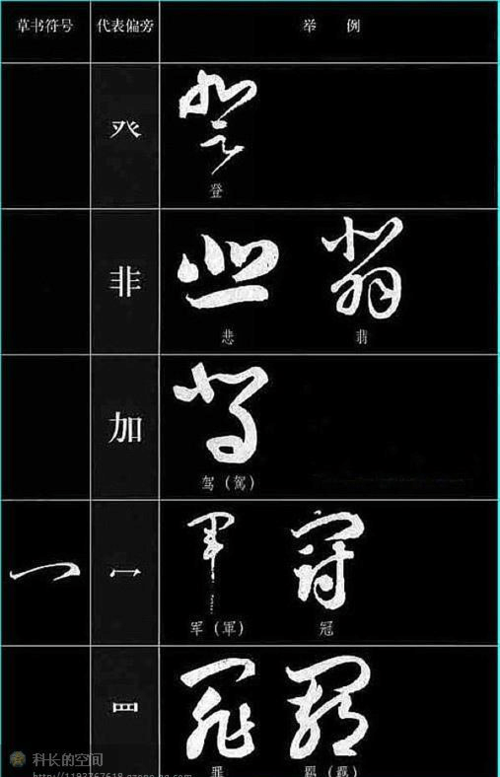 草书符号 代表偏旁 举例
癶
登
非
悲 翡
加
驾（駕）
冖
军（軍） 冠
罒
罪 羁（羈）
科长的空间